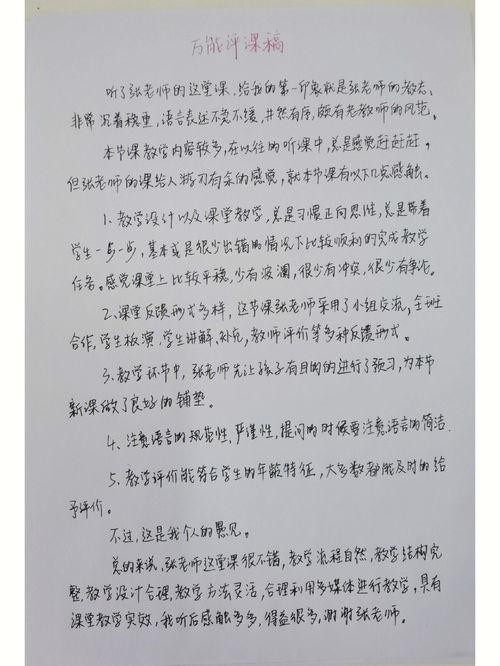 万能评课稿
听了张老师的这堂课，给我的第一印象就是张老师的教态
非常沉着稳重，语言表述不急不缓，井然有序，颇有老教师的风范。
本节课教学内容较多，在以往的听课中，总是感觉赶赶赶。
但张老师的课给人游刃有余的感觉，就本节课有以下几点感触。
1、教学设计以及课堂教学，总是习惯正向思维，总是带着
学生一步一步，基本或是很少出错的情况下比较顺利的完成教学
任务。感觉课堂上比较平稳，少有波澜，很少有冲突，很少有争论。
2.课堂反馈形式多样，这节课张老师采用了小组交流，全班
合作，学生板演，学生讲解，补充，教师评价等多种反馈形式。
3.教学环节中，张老师先让孩子有目的的进行了预习，为本节
新课做了良好的铺垫。
4、注意语言的规范性，严谨性，提问的时候要注意语言的简洁.
5、教学评价能符合学生的年龄特征，大多数都能及时的给
予评价。
不过，这是我个人的愚见。
总的来说，张老师这堂课很不错，教学流程自然，教学结构完
整，教学设计合理，教学方法灵活，合理利用多媒体进行教学，具有
课堂教学实效，我听后感触多多，得益很多，谢谢张老师。